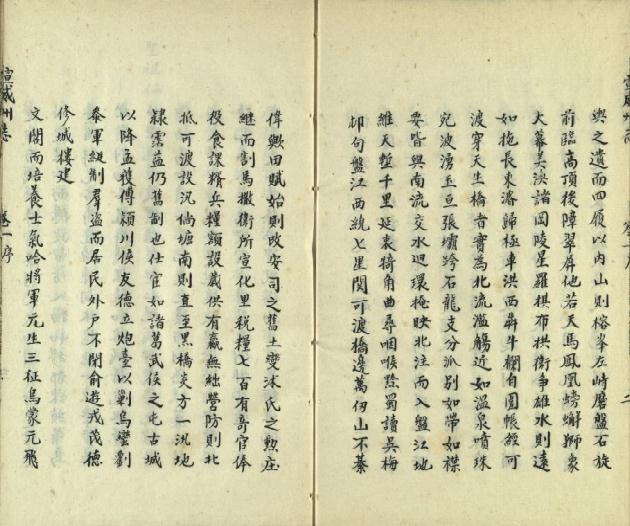 輿之遺而四履以內山則榕峯左峙磨盤石旋
前臨高頂後障翠屏他若天馬鳳凰螃蠏獅象
大幕美泱諸岡陵星羅棋布拱衛爭雄水則遠
如拖長東瀋歸極車洪西犇牛欄自圍帳經可
波穿天生橋者實為北流濫觴近如溫泉噴珠
宛波湧玉亘張壩跨石龍支分派別如帶如襟
要皆與南流交水迴環掩映北注而入盤江地
維天塹千里延袤犄角曲尋咽喉黔蜀讀吳梅
邨句盤江西繞七星関可渡橋邊萬仞山不綦
偉歟田賦始則改安司之舊土變沐氏之勲庄
継而割馬撒衛所宣化里税糧七百有竒官俸
役食課糈兵糧額設歲供有嬴無絀營防則北
抵可渡設汛倘塘南則直至黑橋炎方一汛地
隸霑益仍舊制也仕宦如諸葛武侯之屯古城
以降孟獲傅穎川侯友德立炮臺以剿烏蠻劉
叅軍綎制羣盗而居民外戸不閉俞遊戎茂德
修城樓建
文閣而培養士氣哈將軍元生三征烏蒙元飛
宣威州志
卷一序